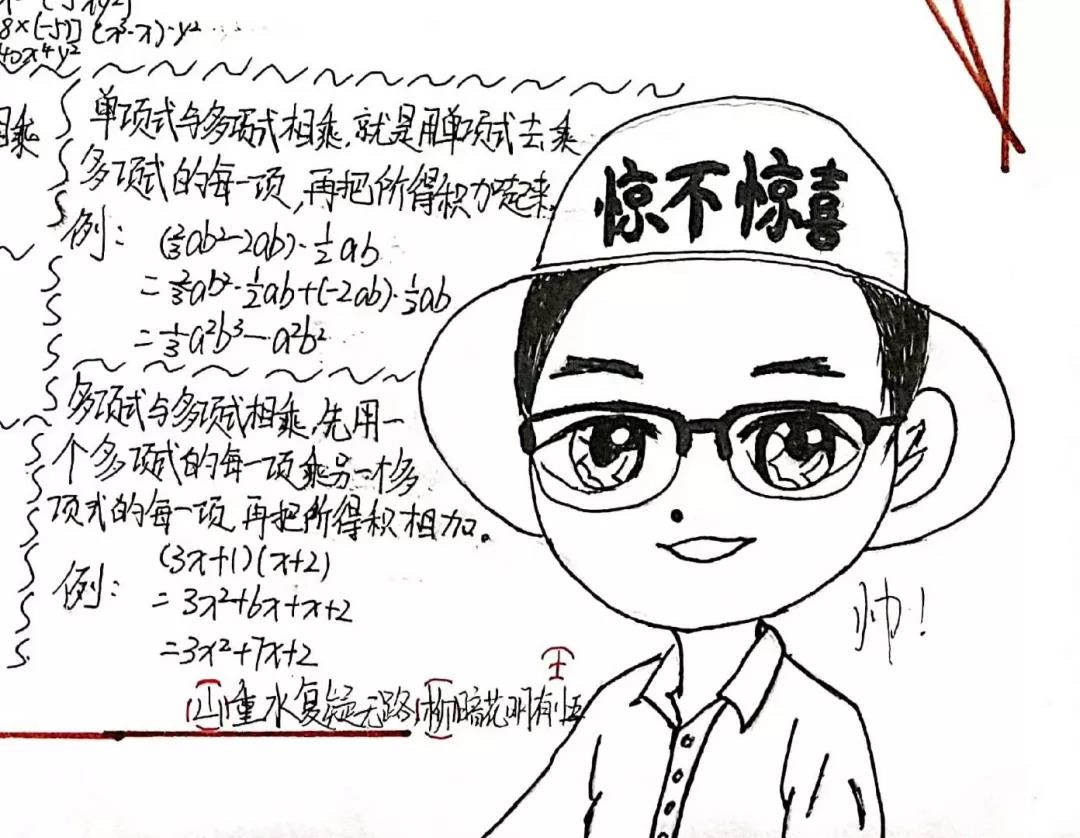 8×(-5)](x³·x)·y²
40x⁴y²
相乘
单项式与多项式相乘,就是用单项式去乘
多项式的每一项,再把所得积加起来。
例: (⅔ab²-2ab)·½ab
=⅔ab²·½ab+(-2ab)·½ab
=⅓a²b³-a²b²
多项式与多项式相乘,先用一
个多项式的每一项乘另一个多
项式的每一项,再把所得积相加。
例: (3x+1)(x+2)
=3x²+6x+x+2
=3x²+7x+2
山重水复疑无路 柳暗花明有
惊不惊喜
帅!